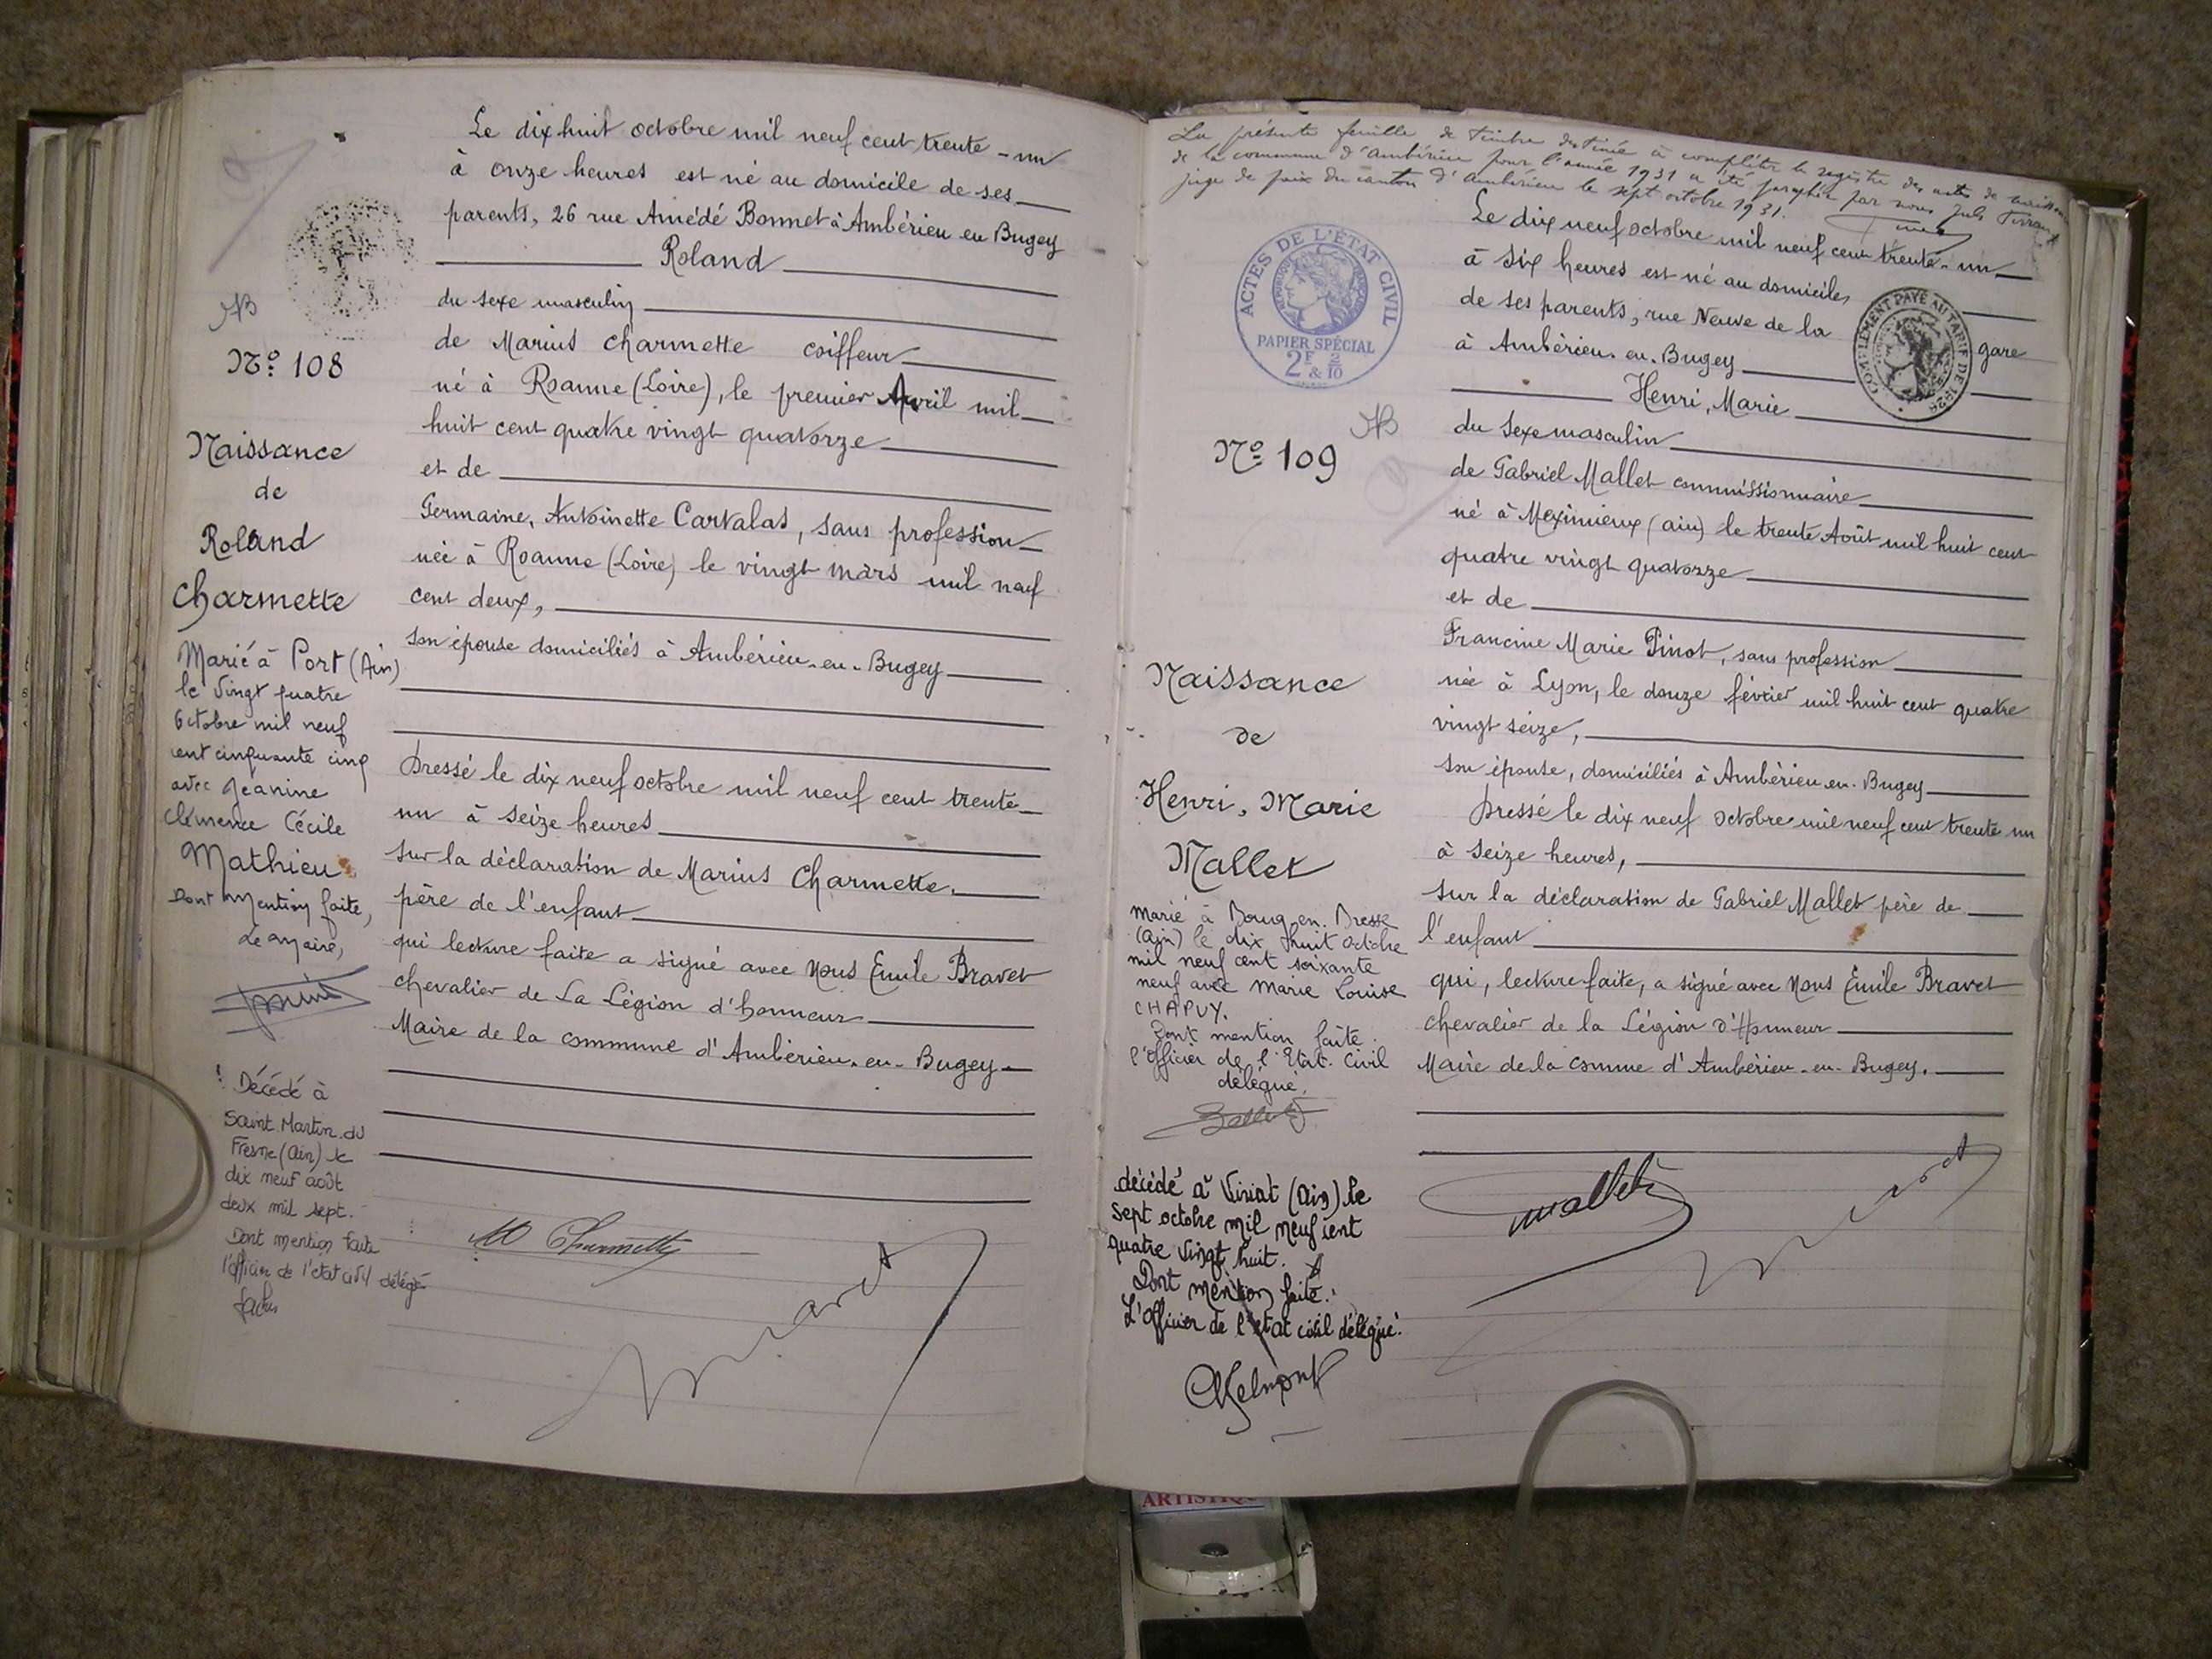 Le dix huit octobre mil neuf cent trente - un
à onze heures est né au domicile de ses
parents, 26 rue Amédé Bonnet à Ambérieu en Bugey
Roland
du sexe masculin
de Marius Charmette coiffeur
né à Roanne (Loire), le premier Avril mil
huit cent quatre vingt quatorze
et de
Germaine, Antoinette Cartalas, sans profession
née à Roanne (Loire) le vingt mars mil neuf
cent deux,
son épouse domiciliés à Ambérieu-en-Bugey
Dressé le dix neuf octobre mil neuf cent trente
un à seize heures
sur la déclaration de Marius Charmette,
père de l'enfant
qui lecture faite a signé avec Nous Emile Bravet
chevalier de La Légion d'honneur
Maire de la commune d'Ambérieu-en-Bugey
M Charmette
Bravet
No. 108
Naissance
de
Roland
Charmette
Marié à Port (Ain)
le vingt quatre
Octobre mil neuf
cent cinquante cinq
avec Jeanine
Clémence Cécile
Mathieu
Dont Mention faite,
Le Maire,
Décédé à
Saint Martin du
Fresne (Ain) le
dix neuf août
deux mil sept.
Dont mention faite
l'officier de l'etat civil délégé
La présente feuille de timbre destinée à compléter le registre des actes de naissance
de la commune d'Ambérieu pour l'année 1931 a été paraphée par nous Juls Terrand
juge de paix du canton d'Ambérieu le sept octobre 1931.
ACTES DE L'ÉTAT CIVIL
PAPIER SPÉCIAL
2F & 2/10
COMPLÉMENT PAYÉ AU TARIF DE 1926
Le dix neuf octobre mil neuf cent trente-un
à six heures est né au domicile,
de ses parents, rue Neuve de la gare
à Ambérieu-en-Bugey
Henri, Marie
du sexe masculin
de Gabriel Mallet commissionnaire
né à Meximieux (ain) le trente Août mil huit cent
quatre vingt quatorze
et de
Francine Marie Pinot, sans profession
née à Lyon, le douze février mil huit cent quatre
vingt seize,
son épouse, domiciliés à Ambérieu-en-Bugey
Dressé le dix neuf octobre mil neuf cent trente un
à seize heures,
sur la déclaration de Gabriel Mallet père de
l'enfant
qui, lecture faite, a signé avec Nous Emile Bravet
chevalier de la Légion d'Honneur
Maire de la comme d'Ambérieu-en-Bugey.
Mallet
Bravet
No. 109
Naissance
de
Henri, Marie
Mallet
marié à Bourg en Bresse
(Ain) le dix huit octobre
mil neuf cent soixante
neuf avec Marie Louise
CHAPUY.
Dont mention faite.
l'Officier de l'Etat Civil
délégué.
décédé à Viriat (Ain) le
sept octobre mil neuf cent
quatre vingt huit.
Dont mention faite.
L'officier de l'état civil délégué.
ARTISTIQU